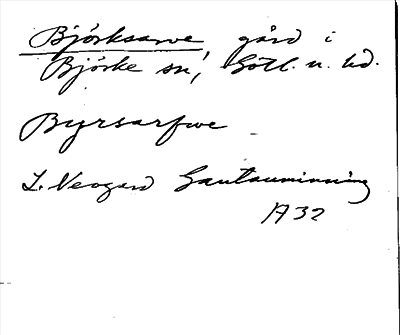 Björksarve gård i
Björke sn, Gotl. n. hd.
Byrsarfwe
L. Neogard Gautauminning
1732